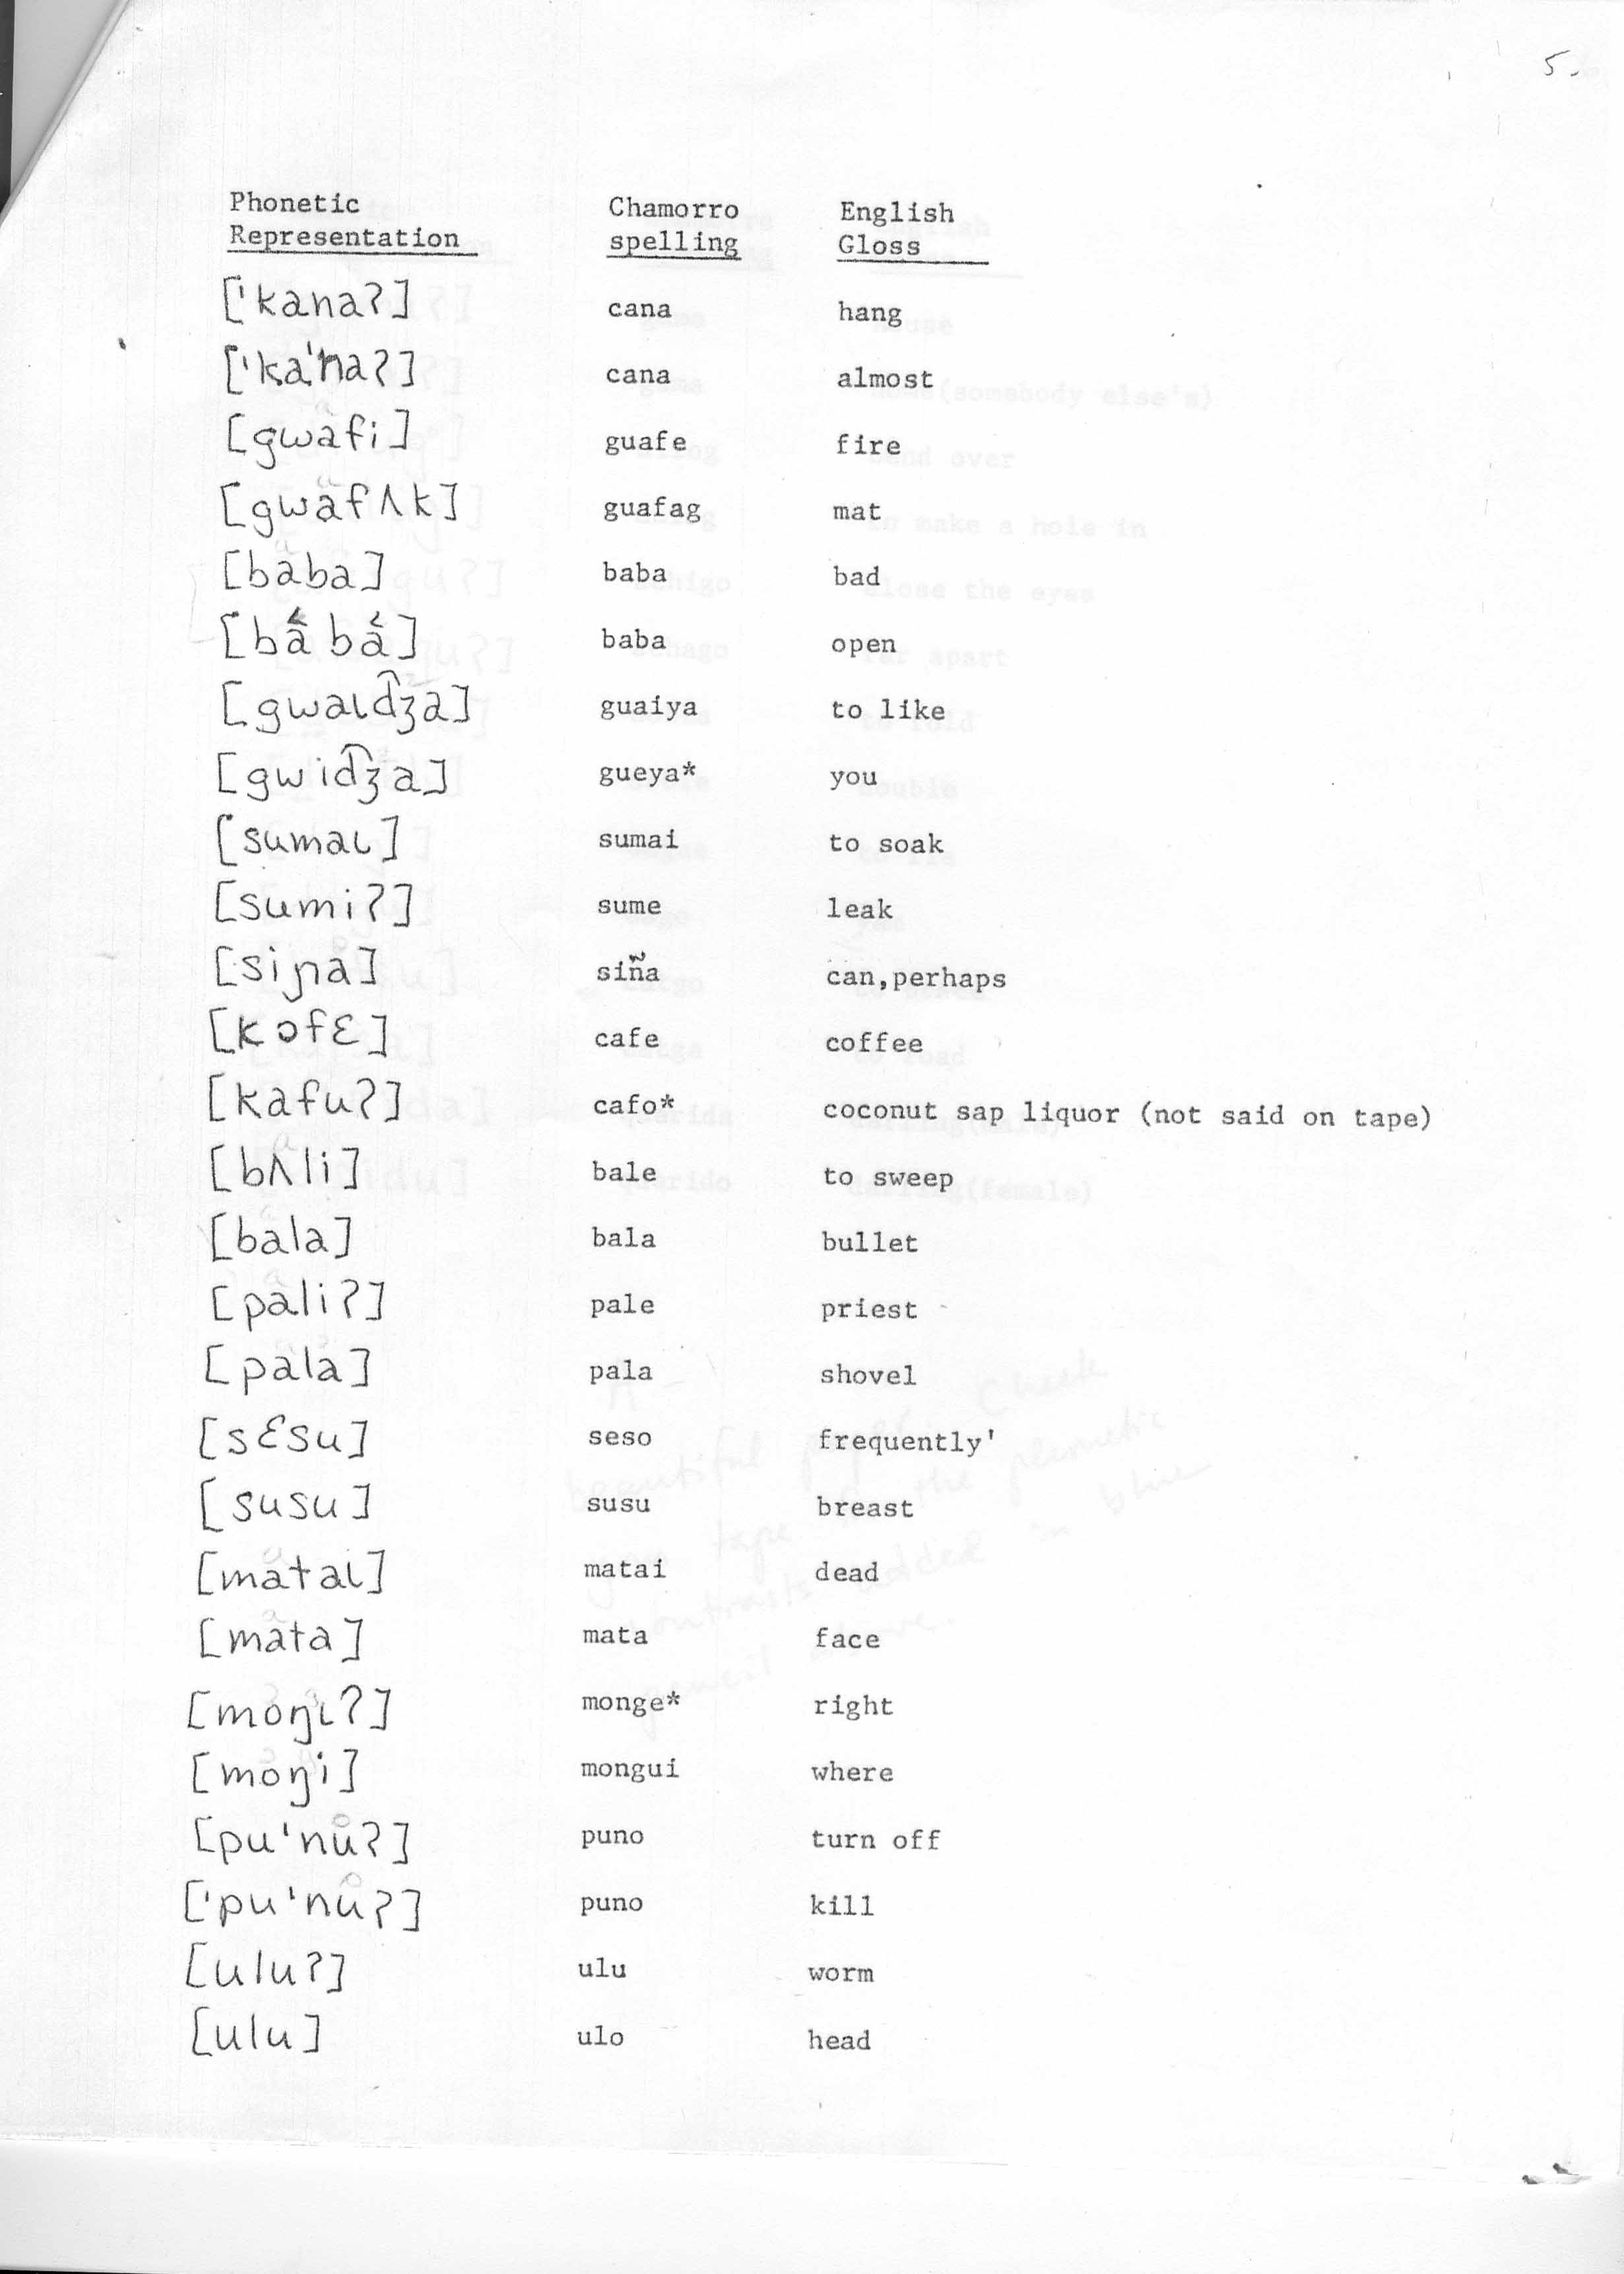 5.
Phonetic Representation Chamorro spelling English Gloss
['kanaʔ] cana hang
['ka'naʔ] cana almost
[gwafi] guafe fire
[gwafʌk] guafag mat
[baba] baba bad
[bá bá] baba open
[gwaɩd͡ʒa] guaiya to like
[gwid͡ʒa] gueya* you
[sumaɩ] sumai to soak
[sumiʔ] sume leak
[siɲa] siña can,perhaps
[kɔfɛ] cafe coffee
[kafuʔ] cafo* coconut sap liquor (not said on tape)
[bʌli] bale to sweep
[bala] bala bullet
[paliʔ] pale priest
[pala] pala shovel
[sɛsu] seso frequently'
[susu] susu breast
[mataɩ] matai dead
[mata] mata face
[moŋɩʔ] monge* right
[moŋi] mongui where
[pu'nuʔ] puno turn off
['pu'nuʔ] puno kill
[uluʔ] ulu worm
[ulu] ulo head